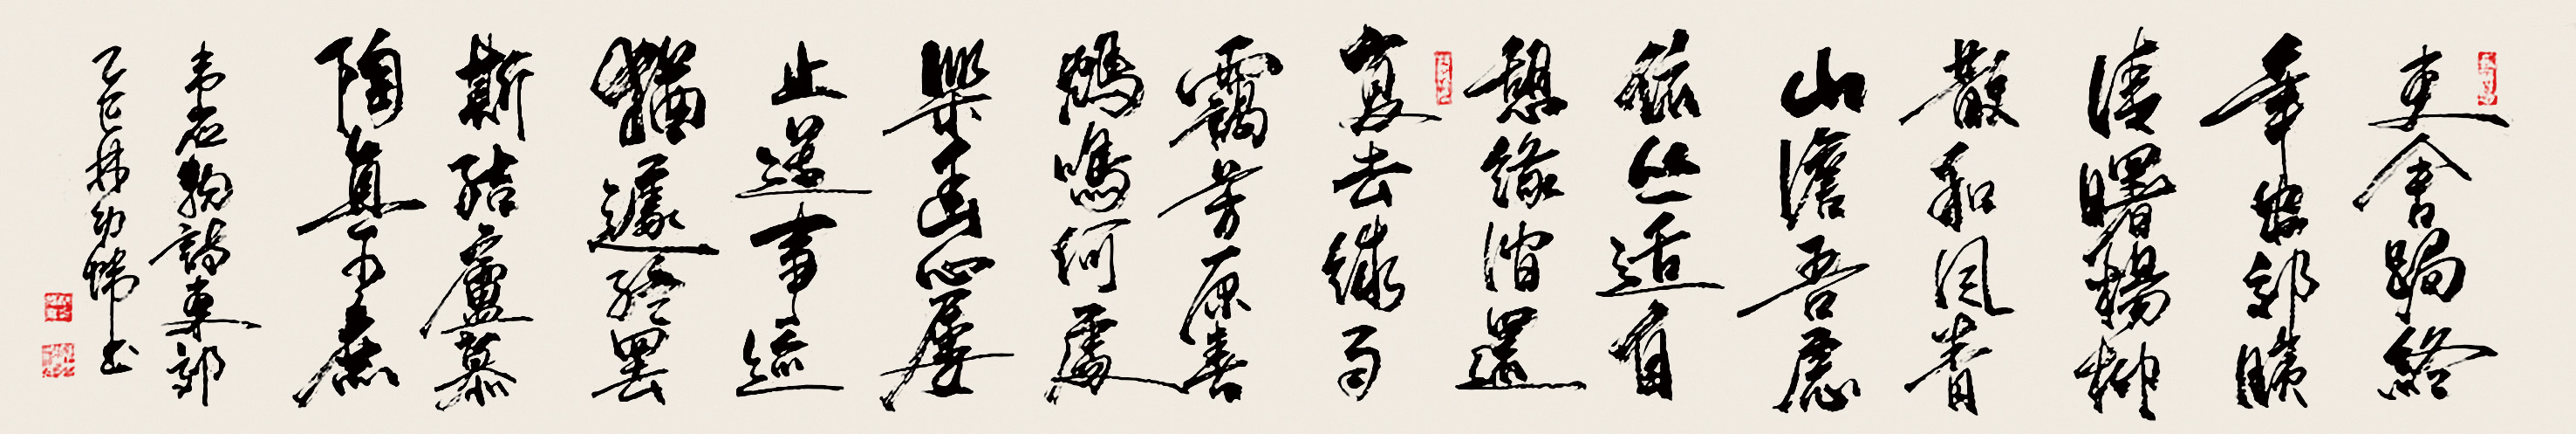 吏舍跼終
年出郊曠
清曙楊柳
散和風青
山澹吾慮
依丛適自
憩緣澗還
復去微雨
靄芳原春
鳩鳴何處
樂幽心屢
止遵事迹
猶遽終罷
斯結廬慕
陶真可庶
韦应物詩東郊
乙巳林幼书